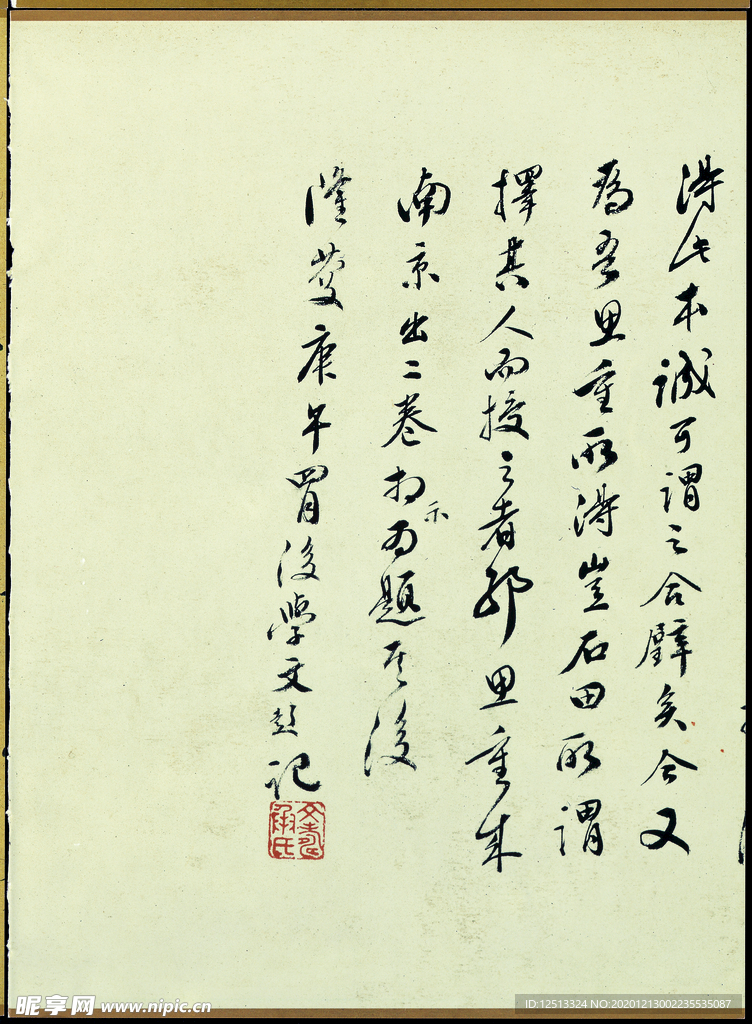 得此本誠可謂之合璧矣今又
為吾思重所得豈石田所謂
擇其人而授之者耶思重來
南京出二卷相示因題其後
隆慶庚午四月後學文彭記
昵享网 www.nipic.cn
ID:12513324 NO:20201213002235535087